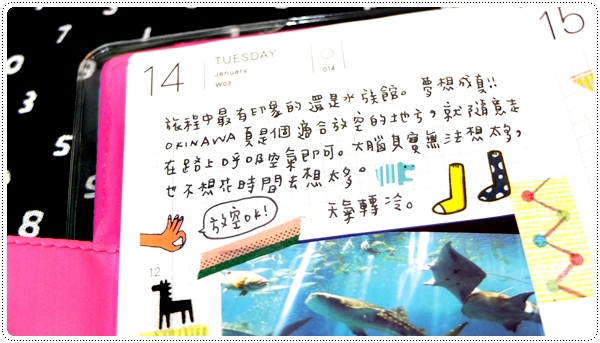 14
TUESDAY
January
W03
014
15
旅程中最有印象的還是水族館。夢想成真!!
OKINAWA真是個適合放空的地方,就隨意走
在路上呼吸空氣即可。大腦其實無法想太多,
也不想花時間去想太多。
天氣轉冷。
放空OK!
12